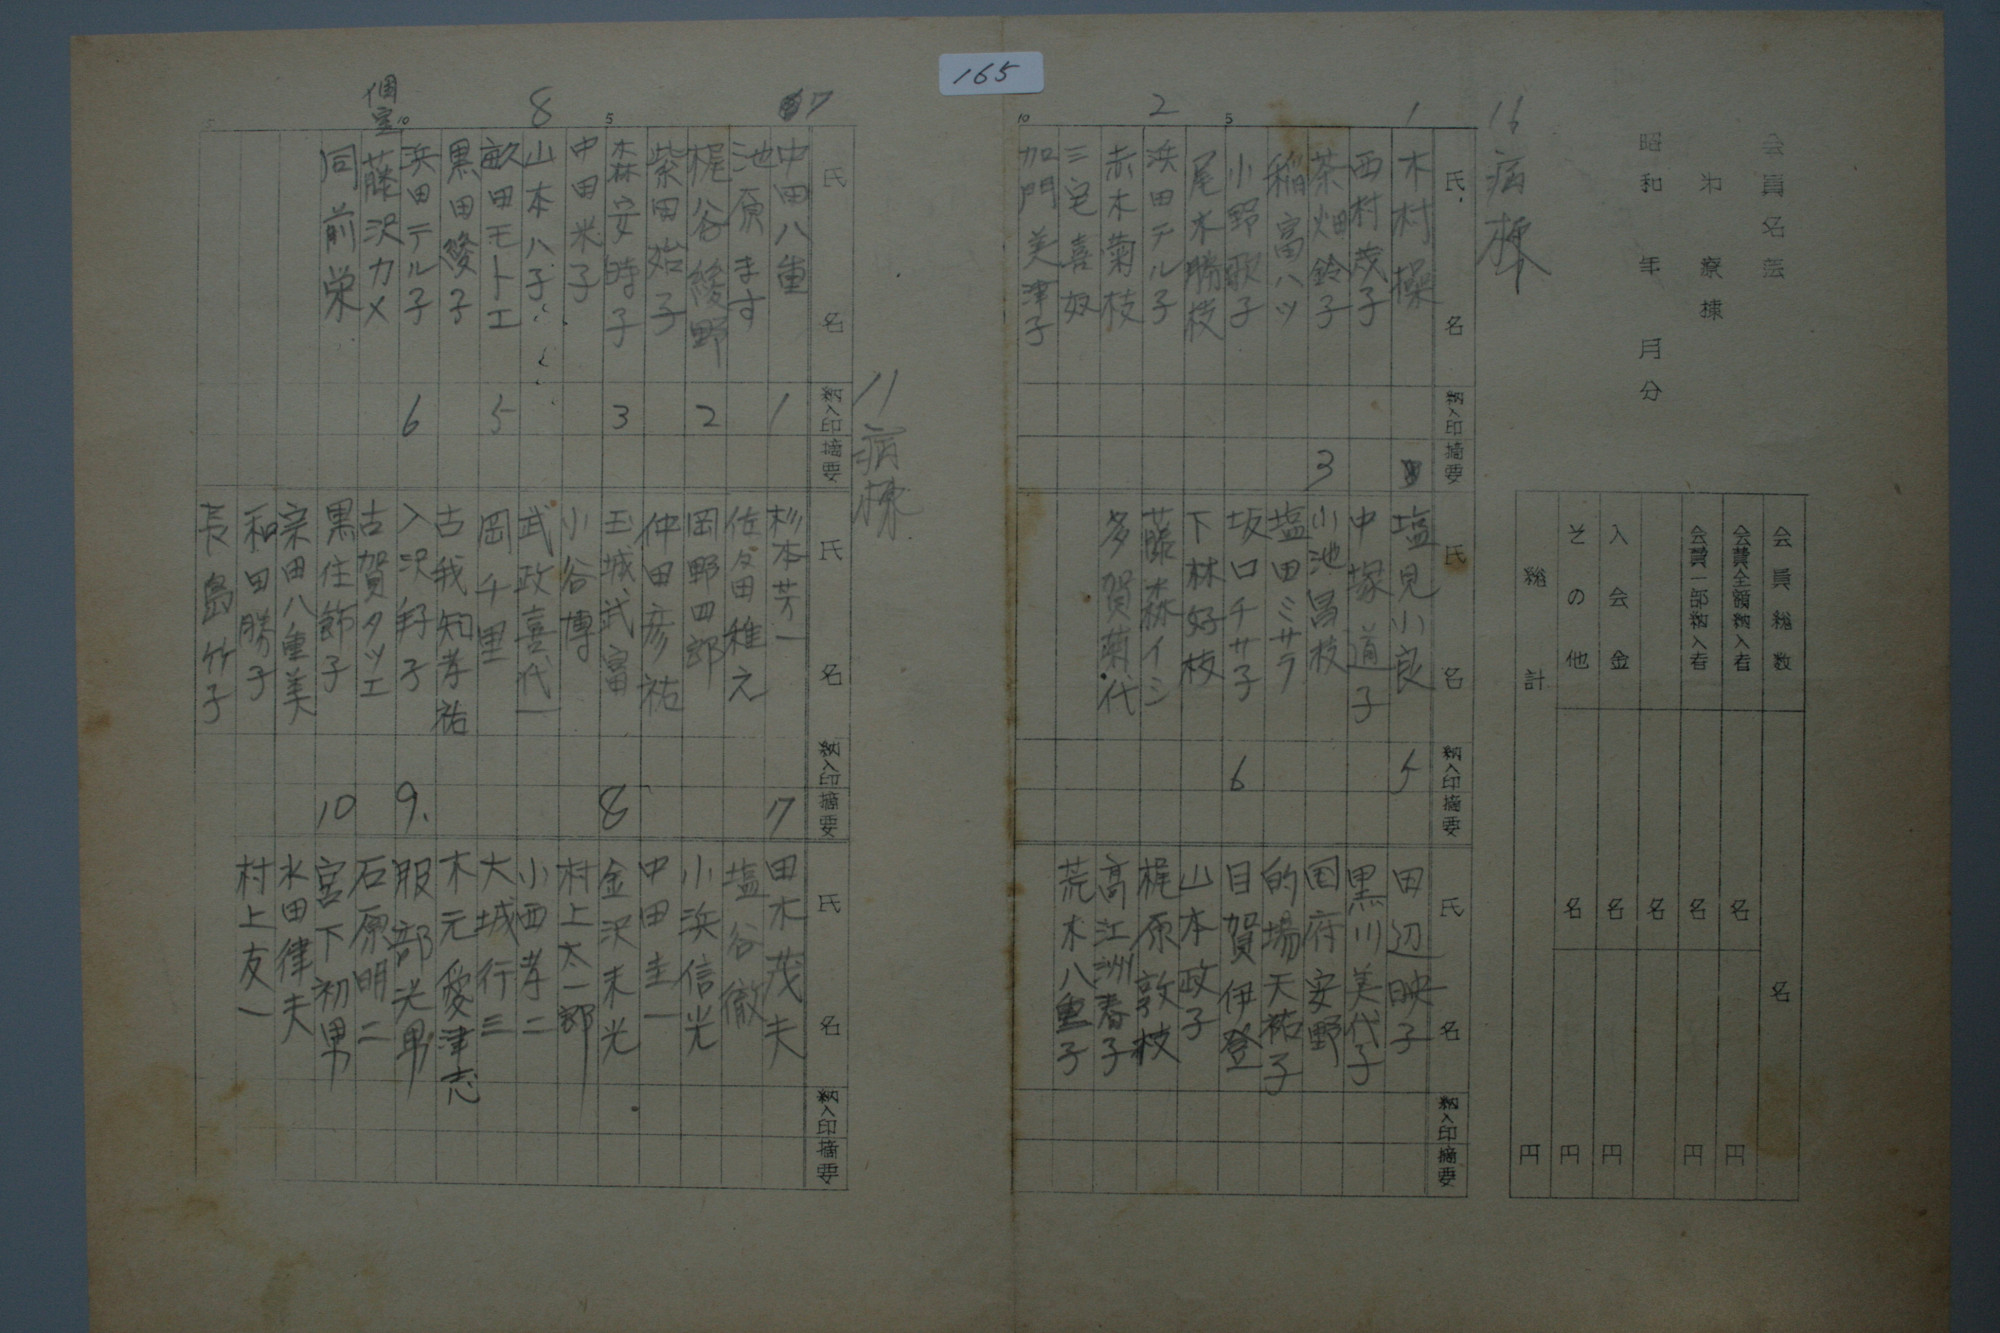 165
会員名簿
寮棟
昭和 年 月分
会員総数 名
会費全額納入者 名 円
会費一部納入者 名 円
名
入会金 名 円
その他 名 円
総計 円
16病棟
氏名 納入印 摘要 氏名 納入印 摘要 氏名 納入印 摘要
1
5
2
10
木村操
西村茂子
茶畑鈴子
稲富ハツ
小野歌子
尾木勝枝
浜田テル子
赤木菊枝
三宅喜奴
加門美津子
3
塩見小良
中塚道子
小池昌枝
塩田ミサラ
坂口チサ子
下林好枝
藤森イシ
多賀菊代
5
6
田辺映子
黒川美代子
国府安野
的場天祐子
目賀伊登
山本政子
梶原敦枝
高江洲春子
荒木八重子
11病棟
氏名 納入印 摘要 氏名 納入印 摘要 氏名 納入印 摘要
7
5
8
10
個室
中田八重
池原ます
梶谷綾野
柴田始子
森安時子
中田米子
山本八子
畝田モトエ
黒田綾子
浜田テル子
藤沢カメ
同前栄
1
2
3
5
6
杉本芳一
佐々田稚之
岡野四郎
仲田彦祐
玉城武富
小谷博
武政喜代一
岡千里
古我知孝祐
入沢好子
古賀タツエ
黒住節子
宗田八重美
和田勝子
長島竹子
7
8
9.
10
田木茂夫
塩谷徹
小浜信光
中田圭一
金沢末光
村上太一郎
小西孝二
大城行三
木元愛津志
服部光男
石原明二
宮下初男
水田律夫
村上友一